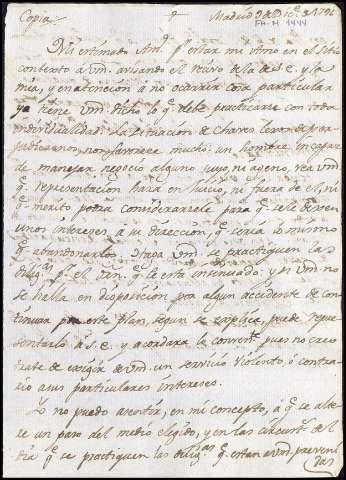 Copia + Madrid 9 de Dic.e de 1794
FA-M. 1444
Mi estimado Am.o P.r estar mi Amo en el Sitio
contexto a Vm. avisando el recivo de la de S.E. y la
mia, y en atencion à no ocurrir cosa particular
ya tiene Vm. dicho lo q.e debe practicarse con toda
individualidad. La situacion de
no favorece mucho: un hombre incapaz
de manejar negocio alguno suyo, ni ageno, vea Vm.
q.e representacion hará en Juicio, ni fuera de el, ni
q.e merito podrá considerarsele para q.e se le
unos intereses à su direccion, q.e seria lo mismo
q.e abandonarlos. Haga Vm. se practiquen las
dilig.as p.r el q.e le està insinuado: y si Vm. no
se halla en disposicion por algun accidente de con-
tinuar p.r este Plan, segun se explica, puede repre-
sentarlo à S.E. y acordará lo convent.e pues no creo
trate de exigir de Vm. un servicio violento, ó contra-
rio a sus particulares intereses.
Yo no puedo asentir, en mi concepto, à q.e se alte-
re un paso del medio elegido, y en las circunst.s del
dia q.e se practiquen las dilig.as q.e estan a Vm. preveni
das